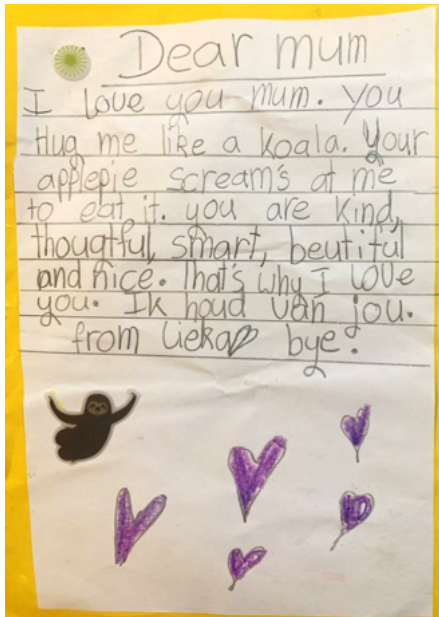 Dear mum
I love you mum. you
Hug me like a koala. Your
applepie scream's at me
to eat it. you are kind,
thougtful, smart, beutiful
and nice. That's why I love
you. Ik houd van jou.
from Lieka bye!